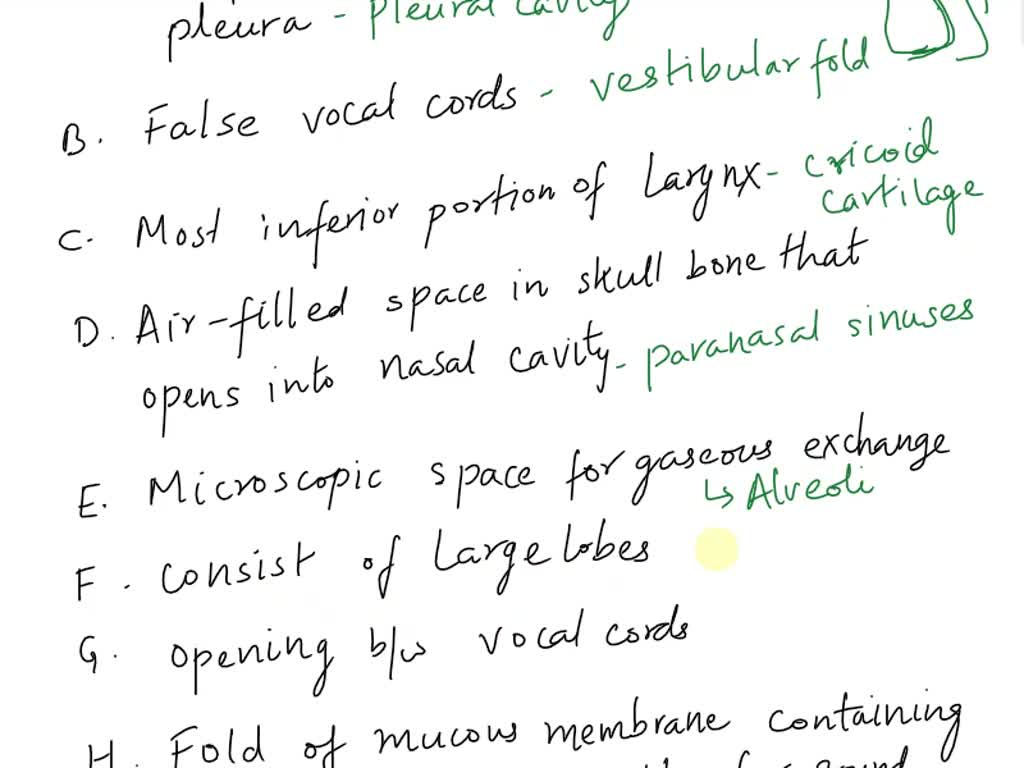 pleura - Pleural cavity
B. False vocal cords - vestibular fold
C. Most inferior portion of Larynx - cricoid
cartilage
D. Air-filled space in skull bone that
opens into nasal cavity - paranasal sinuses
E. Microscopic space for gaseous exchange
↳ Alveoli
F. consist of Large lobes
G. opening b/w vocal cords
H. Fold of mucous membrane containing